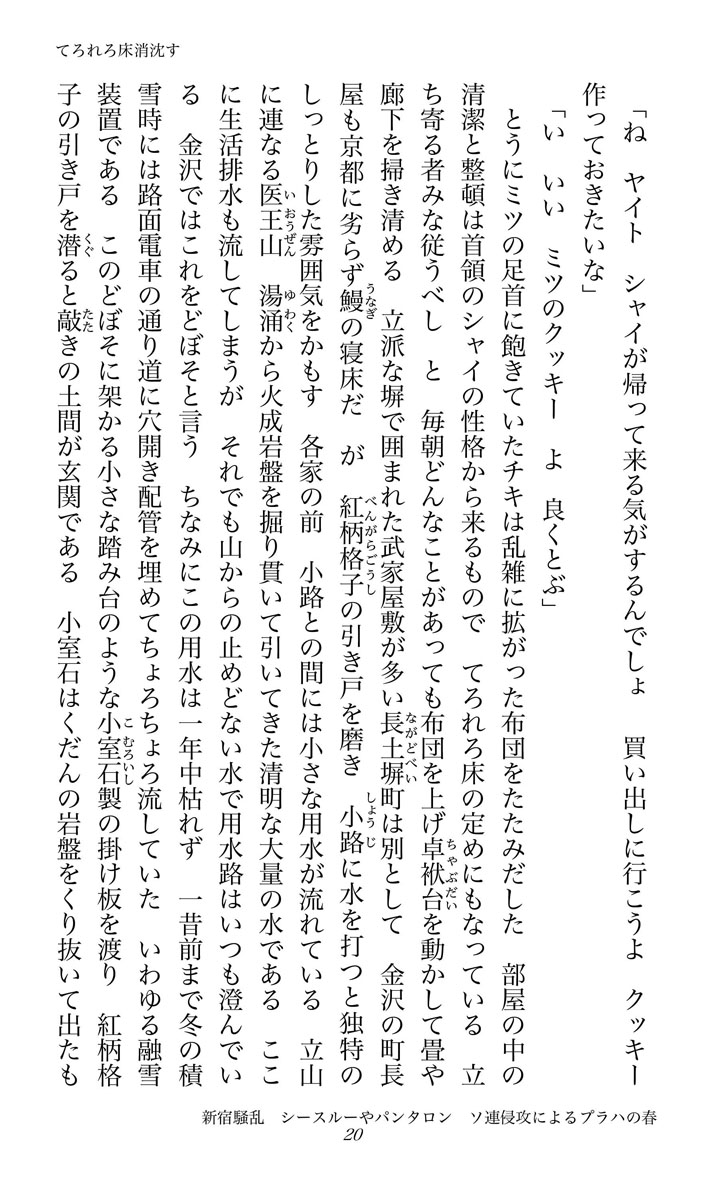 てろれろ床消沈す
「ね　ヤイト　シャイが帰って来る気がするんでしょ　買い出しに行こうよ　クッキー
作っておきたいな」
「い　いい　ミツのクッキー　よ　良くとぶ」
とうにミツの足首に飽きていたチキは乱雑に拡がった布団をたたみだした　部屋の中の
清潔と整頓は首領のシャイの性格から来るもので　てろれろ床の定めにもなっている　立
ち寄る者みな従うべし　と　毎朝どんなことがあっても布団を上げ卓袱台を動かして畳や
廊下を掃き清める　立派な塀で囲まれた武家屋敷が多い長土塀町は別として　金沢の町長
屋も京都に劣らず鰻の寝床だ　が　紅柄格子の引き戸を磨き　小路に水を打つと独特の
しっとりした雰囲気をかもす　各家の前　小路との間には小さな用水が流れている　立山
に連なる医王山　湯涌から火成岩盤を掘り貫いて引いてきた清明な大量の水である　ここ
に生活排水も流してしまうが　それでも山からの止めどない水で用水路はいつも澄んでい
る　金沢ではこれをどぼそと言う　ちなみにこの用水は一年中枯れず　一昔前まで冬の積
雪時には路面電車の通り道に穴開き配管を埋めてちょろちょろ流していた　いわゆる融雪
装置である　このどぼそに架かる小さな踏み台のような小室石製の掛け板を渡り　紅柄格
子の引き戸を潜ると敲きの土間が玄関である　小室石はくだんの岩盤をくり抜いて出たも
新宿騒乱　シースルーやパンタロン　ソ連侵攻によるプラハの春
20